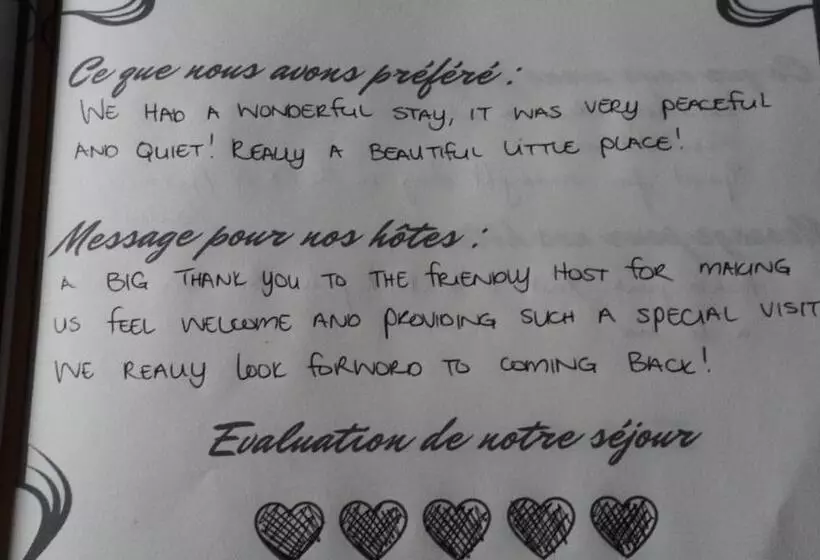 Ce que nous avons préféré :
WE HAD A WONDERFUL STAY, IT WAS VERY PEACEFUL
AND QUIET! REALLY A BEAUTIFUL LITTLE PLACE!
Message pour nos hôtes :
A BIG THANK YOU TO THE FRIENDLY HOST FOR MAKING
US FEEL WELCOME AND PROVIDING SUCH A SPECIAL VISIT
WE REALLY LOOK FORWARD TO COMING BACK!
Evaluation de notre séjour